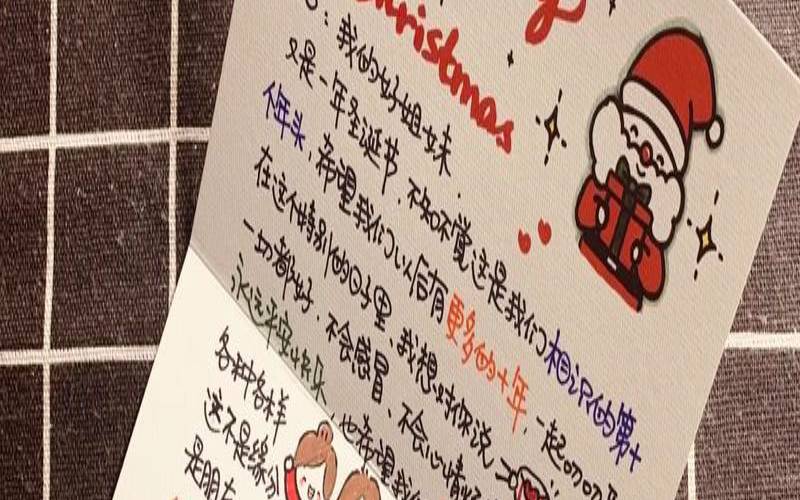 Christmas
：我的好姐妹
又是一年圣诞节，不知不觉这是我们相识的第十
个年头，希望我们以后有更多的十年，一起叨叨
在这个特别的日子里、我想对你说
一切都好，不会感冒、不会心情
永远平安快乐，也希望我
各种各样
这不是缘分
是朋友